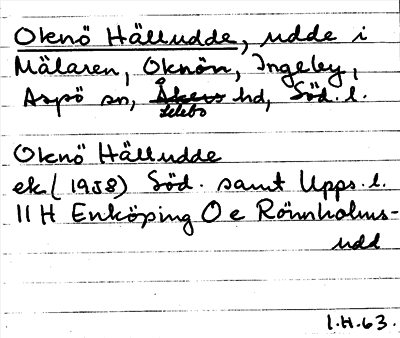 Oknö Hälludde, udde i
Mälaren, Oknön, Ingeby,
Aspö sn, Åkers hd, Söd. l.
Selebo
Oknö Hälludde
ek (1958) Söd. samt Upps. l.
11 H Enköping O e Rönnholms-
udd
I.H.63.